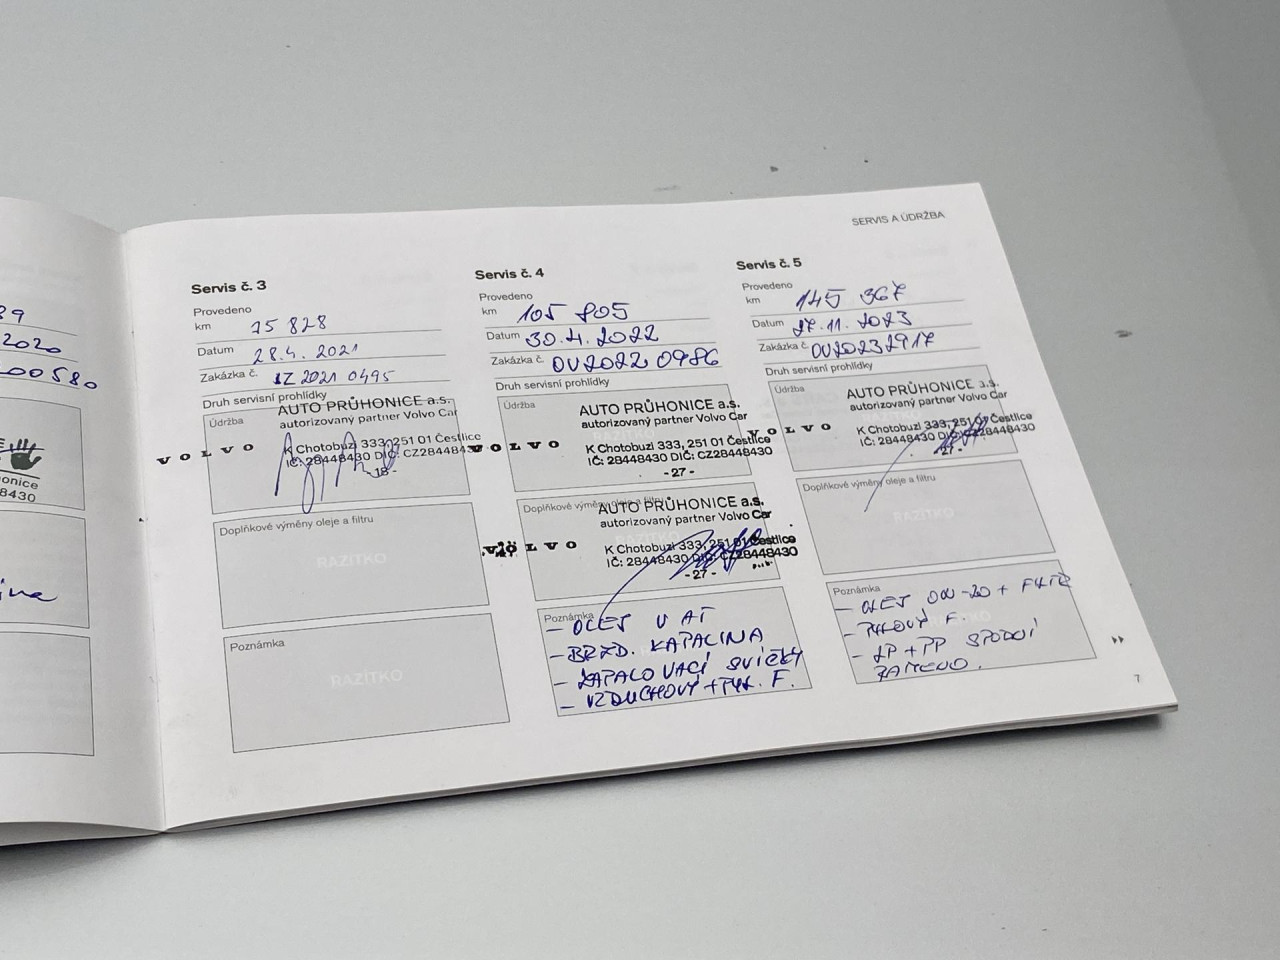 SERVIS A ÚDRŽBA
Servis č. 3
Provedeno
km 75 828
Datum 28.4. 2021
Zakázka č. SZ 2021 0495
Druh servisní prohlídky
Údržba
AUTO PRŮHONICE a.s.
autorizovaný partner Volvo Car
VOLVO
K Chotobuzi 333, 251 01 Čestlice
IČ: 28448430 DIČ: CZ28448430
-18-
Doplňkové výměny oleje a filtru
RAZÍTKO
Poznámka
RAZÍTKO
Servis č. 4
Provedeno
km 105 805
Datum 30.4. 2022
Zakázka č. OV2022 0986
Druh servisní prohlídky
Údržba
AUTO PRŮHONICE a.s.
autorizovaný partner Volvo Car
VOLVO
K Chotobuzi 333, 251 01 Čestlice
IČ: 28448430 DIČ: CZ28448430
-27-
Doplňkové výměny oleje a filtru
AUTO PRŮHONICE a.s.
autorizovaný partner Volvo Car
VOLVO
K Chotobuzi 333, 251 01 Čestlice
IČ: 28448430 DIČ: CZ28448430
-27-
Poznámka
- OLEJ V AT
- BRZD. KAPALINA
- ZAPALOVACÍ SVÍČKY
- VZDUCHOVÝ + PYL. F.
Servis č. 5
Provedeno
km 145 367
Datum 27.11. 2023
Zakázka č. OV20232917
Druh servisní prohlídky
Údržba
AUTO PRŮHONICE a.s.
autorizovaný partner Volvo Car
VOLVO
K Chotobuzi 333, 251 01 Čestlice
IČ: 28448430 DIČ: CZ28448430
-27-
Doplňkové výměny oleje a filtru
RAZÍTKO
Poznámka
- OLEJ 0W-20 + FILTR
- PYLOVÝ F.
- LP + PP SPODNÍ
RAMENO.
7
2020
00580
8430